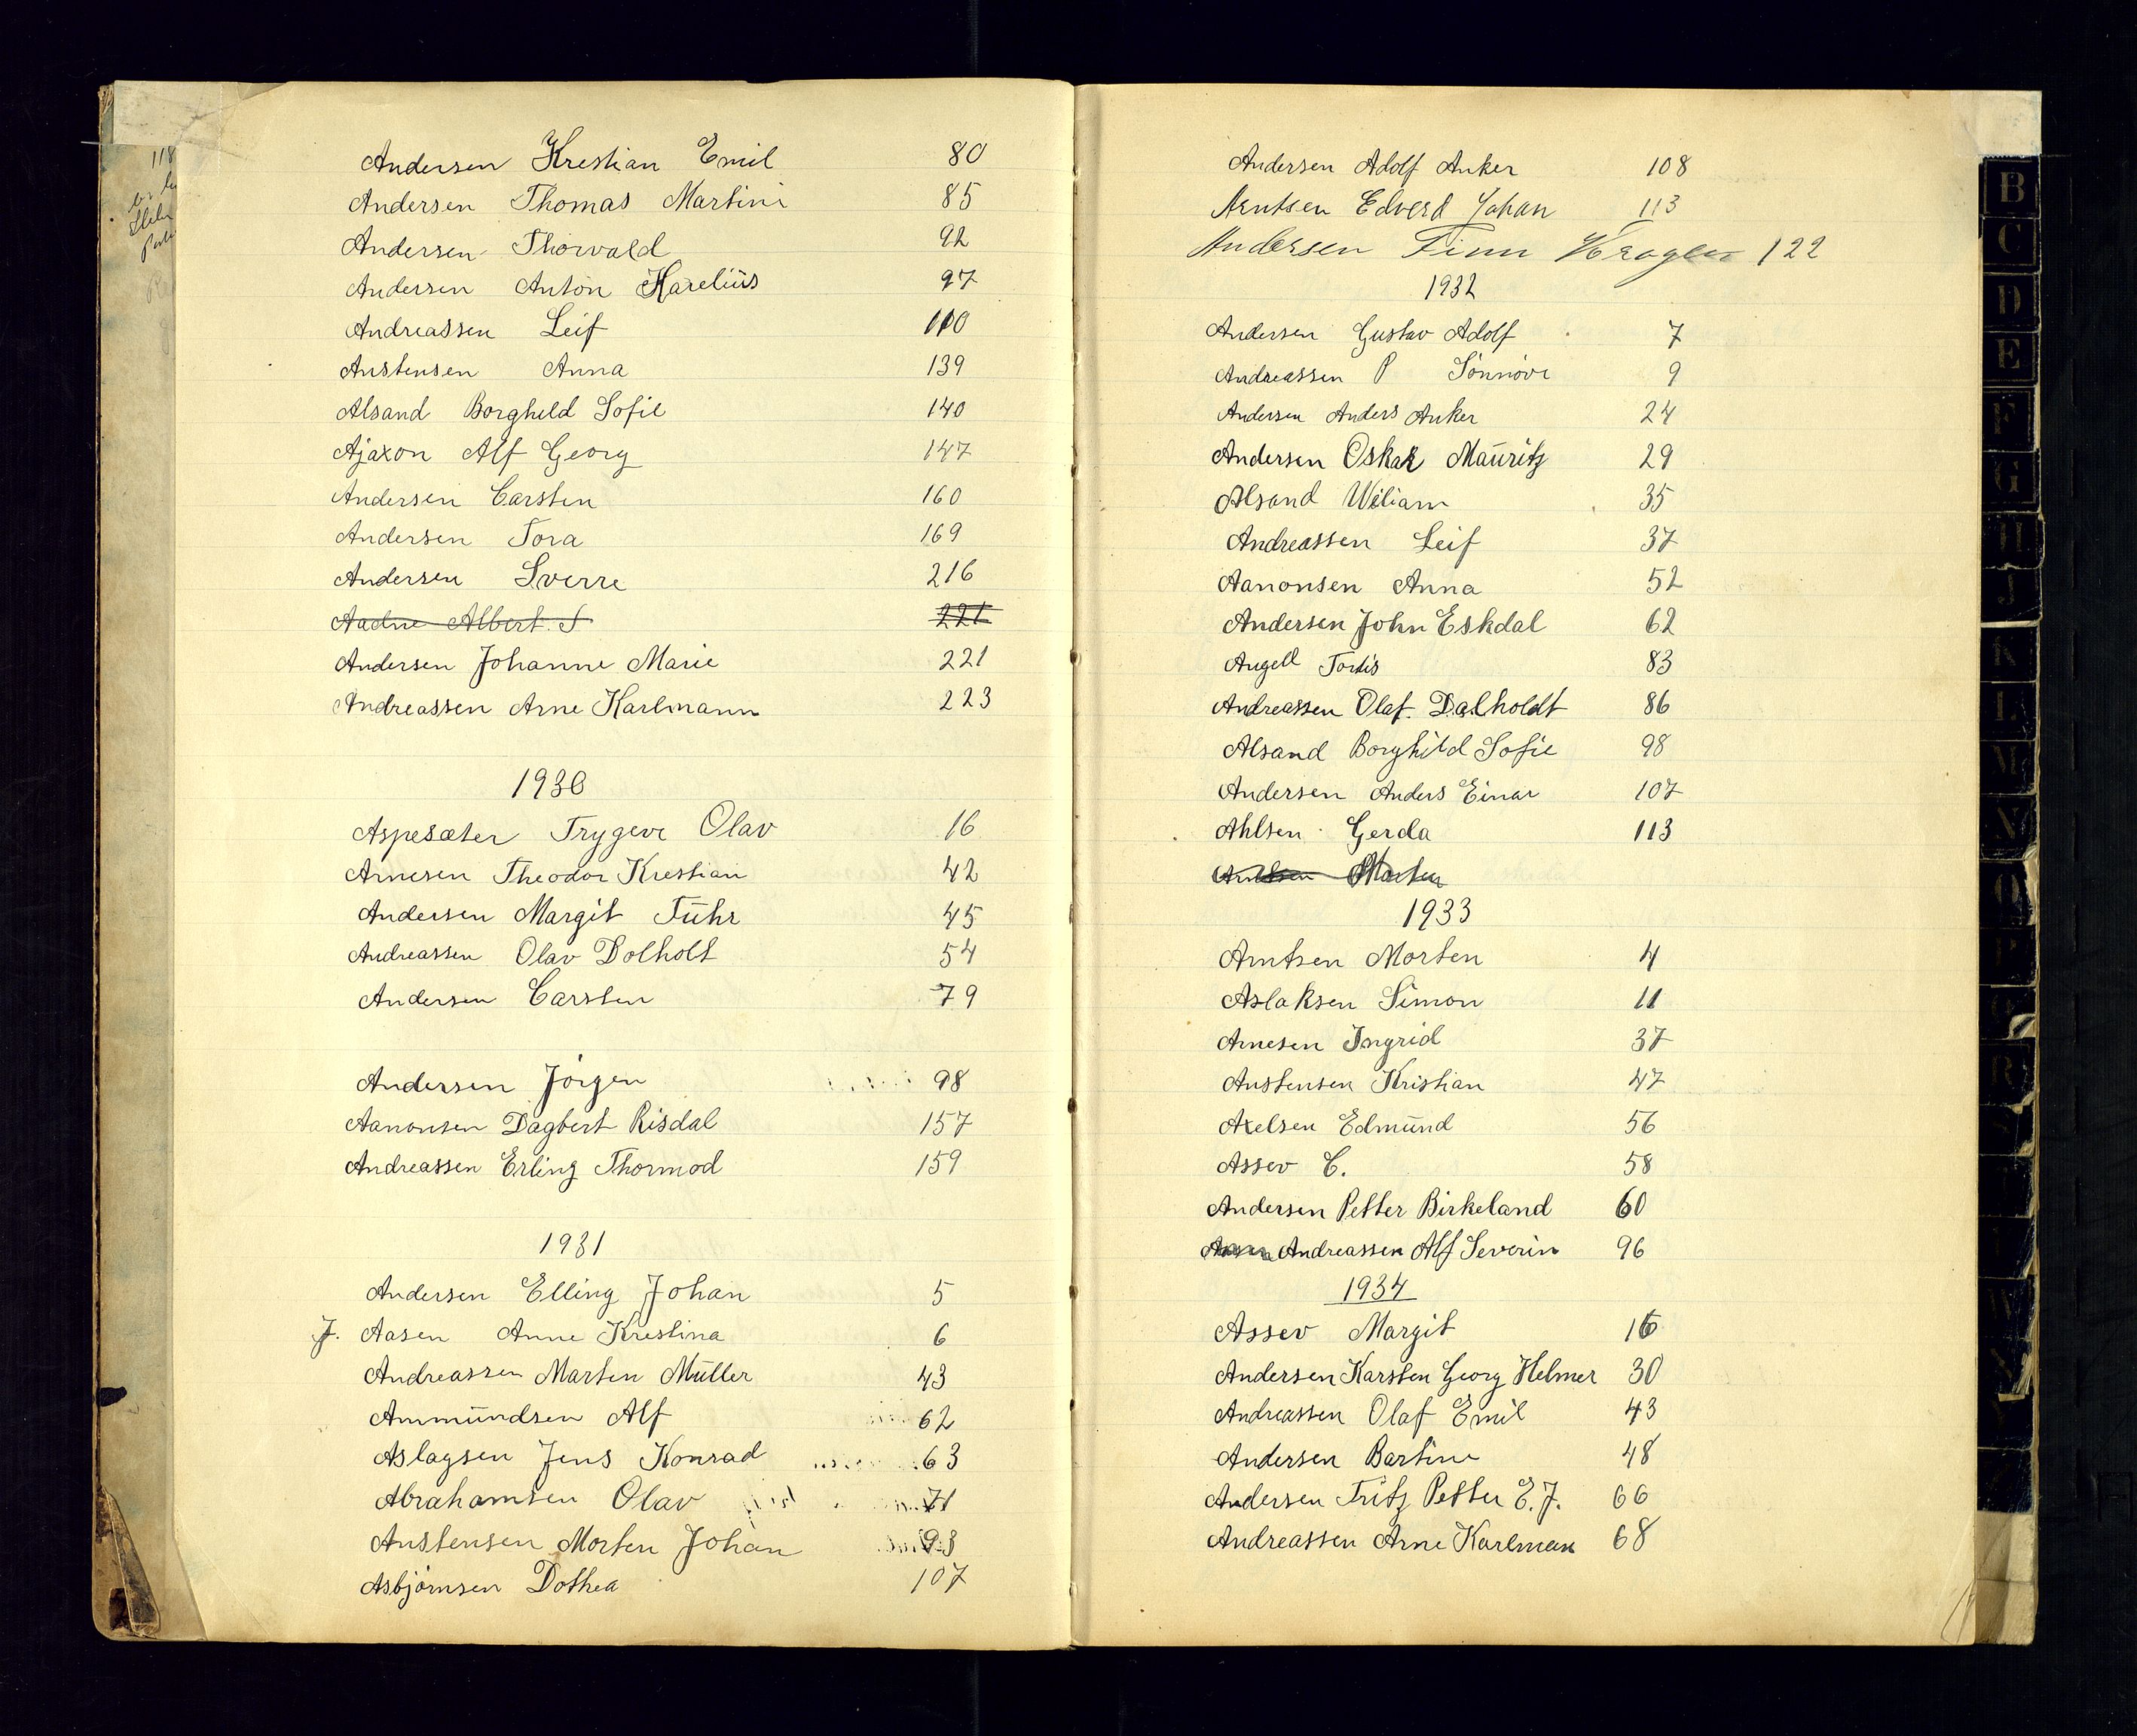 Andersen Krestian Emil 80
Andersen Thomas Martini 85
Andersen Thorvald 92
Andersen Anton Kareliüs 97
Andreassen Leif 110
Austensen Anna 139
Alsand Borghild Sofie 140
Ajaxon Alf Georg 147
Andersen Carsten 160
Andersen Tora 169
Andersen Sverre 216
Aadne Albert S 221
Andersen Johanne Marie 221
Andreassen Arne Karlmann 223
1930
Aspesæter Trygeve Olav 16
Arnesen Theodor Krestian 42
Andersen Margit Tühr 45
Andreassen Olav Dolholt 54
Andersen Carsten 79
Andersen Jörgen 98
Aanonsen Dagbert Risdal 157
Andreassen Erling Thormod 159
1931
Andersen Elling Johan 5
J. Aasen Anne Krestina 6
Andreassen Marten Müller 43
Ammündsen Alf 62
Aslagsen Jens Konrad 63
Abrahamsen Olav 71
Austensen Morten Johan 93
Asbjörnsen Dothea 107
Andersen Adolf Anker 108
Arntsen Edverd Johan 113
Andersen Finn 122
1932
Andersen Gustav Adolf 7
Andreassen P Sönnöve 9
Andersen Anders Anker 24
Andersen Oskar Maüritz 29
Alsand Wiliam 35
Andreassen Leif 37
Aanonsen Anna 52
Andersen John Eskdal 62
Angell Tordis 83
Andreassen Olaf Dalholdt 86
Alsand Borghild Sofie 98
Andersen Anders Einar 107
Ahlsen Gerda 113
Arntsen Morten
1933
Arntsen Morten 4
Aslaksen Simon 11
Arnesen Ingrid 37
Austensen Kristian 47
Axelsen Edmünd 56
Assev C. 58
Andersen Petter Birkeland 60
Andreassen Alf Severin 96
1934
Assev Margit 16
Andersen Karsten Georg Helmer 30
Andreassen Olaf Emil 43
Andersen Bartine 48
Andersen Fritz Petter E. J. 66
Andreassen Arne Karlman 68
B
C
D
E
F
G
H
J
K
L
M
N
O